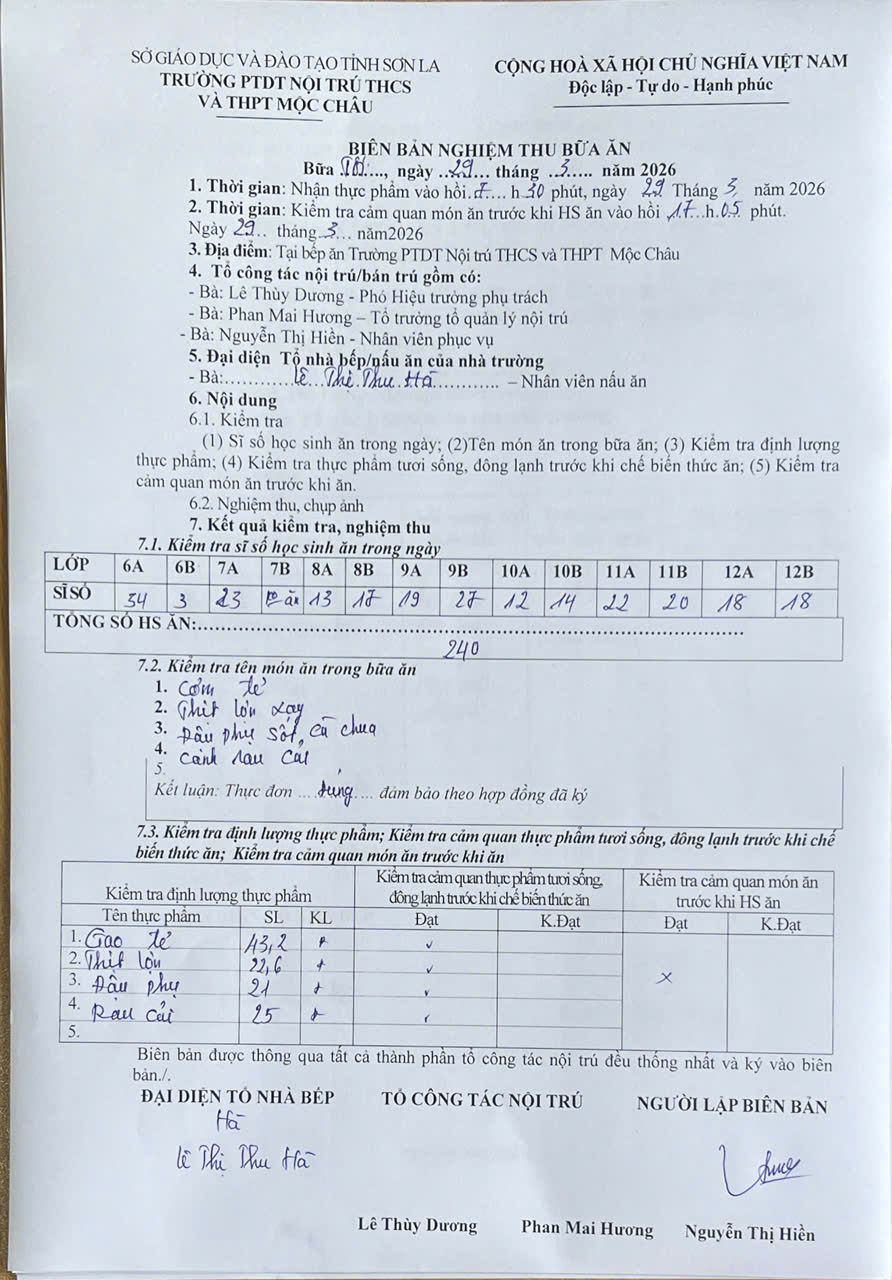 SỞ GIÁO DỤC VÀ ĐÀO TẠO TỈNH SƠN LA
TRƯỜNG PTDT NỘI TRÚ THCS
VÀ THPT MỘC CHÂU
CỘNG HOÀ XÃ HỘI CHỦ NGHĨA VIỆT NAM
Độc lập - Tự do - Hạnh phúc
BIÊN BẢN NGHIỆM THU BỮA ĂN
Bữa ....., ngày ..29... tháng ..3..... năm 2026
1. Thời gian: Nhận thực phẩm vào hồi..... h 30 phút, ngày 29 Tháng 3, năm 2026
2. Thời gian: Kiểm tra cảm quan món ăn trước khi HS ăn vào hồi 17...h.05 phút.
Ngày 29.. tháng.3... năm2026
3. Địa điểm: Tại bếp ăn Trường PTDT Nội trú THCS và THPT Mộc Châu
4. Tổ công tác nội trú/bán trú gồm có:
- Bà: Lê Thùy Dương - Phó Hiệu trưởng phụ trách
- Bà: Phan Mai Hương – Tổ trưởng tổ quản lý nội trú
- Bà: Nguyễn Thị Hiền - Nhân viên phục vụ
5. Đại diện Tổ nhà bếp/nấu ăn của nhà trường
- Bà:............Lê...Thị.Thu.Hà............ – Nhân viên nấu ăn
6. Nội dung
6.1. Kiểm tra
(1) Sĩ số học sinh ăn trong ngày; (2)Tên món ăn trong bữa ăn; (3) Kiểm tra định lượng
thực phẩm; (4) Kiểm tra thực phẩm tươi sống, đông lạnh trước khi chế biến thức ăn; (5) Kiểm tra
cảm quan món ăn trước khi ăn.
6.2. Nghiệm thu, chụp ảnh
7. Kết quả kiểm tra, nghiệm thu
7.1. Kiểm tra sĩ số học sinh ăn trong ngày
LỚP 6A 6B 7A 7B 8A 8B 9A 9B 10A 10B 11A 11B 12A 12B
SĨ SỐ 34 3 23 ăn 13 17 19 27 12 14 22 20 18 18
TỔNG SỐ HS ĂN:..........................................................................
240
7.2. Kiểm tra tên món ăn trong bữa ăn
1. Cơm tẻ
2. Thịt lợn xay
3. Đậu phụ sốt cà chua
4. Canh rau cải
5.
Kết luận: Thực đơn ... đúng ... đảm bảo theo hợp đồng đã ký
7.3. Kiểm tra định lượng thực phẩm; Kiểm tra cảm quan thực phẩm tươi sống, đông lạnh trước khi chế
biến thức ăn; Kiểm tra cảm quan món ăn trước khi ăn
Kiểm tra định lượng thực phẩm
Kiểm tra cảm quan thực phẩm tươi sống,
đông lạnh trước khi chế biến thức ăn
Kiểm tra cảm quan món ăn
trước khi HS ăn
Tên thực phẩm SL KL Đạt K.Đạt Đạt K.Đạt
1. Gạo tẻ 43,2
2. Thịt lợn 22,6
3. Đậu phụ 21
4. Rau cải 25
5.
Biên bản được thông qua tất cả thành phần tổ công tác nội trú đều thống nhất và ký vào biên
bản./.
ĐẠI DIỆN TỔ NHÀ BẾP TỔ CÔNG TÁC NỘI TRÚ NGƯỜI LẬP BIÊN BẢN
Hà
Lê Thị Thu Hà
Lê Thùy Dương Phan Mai Hương Nguyễn Thị Hiền